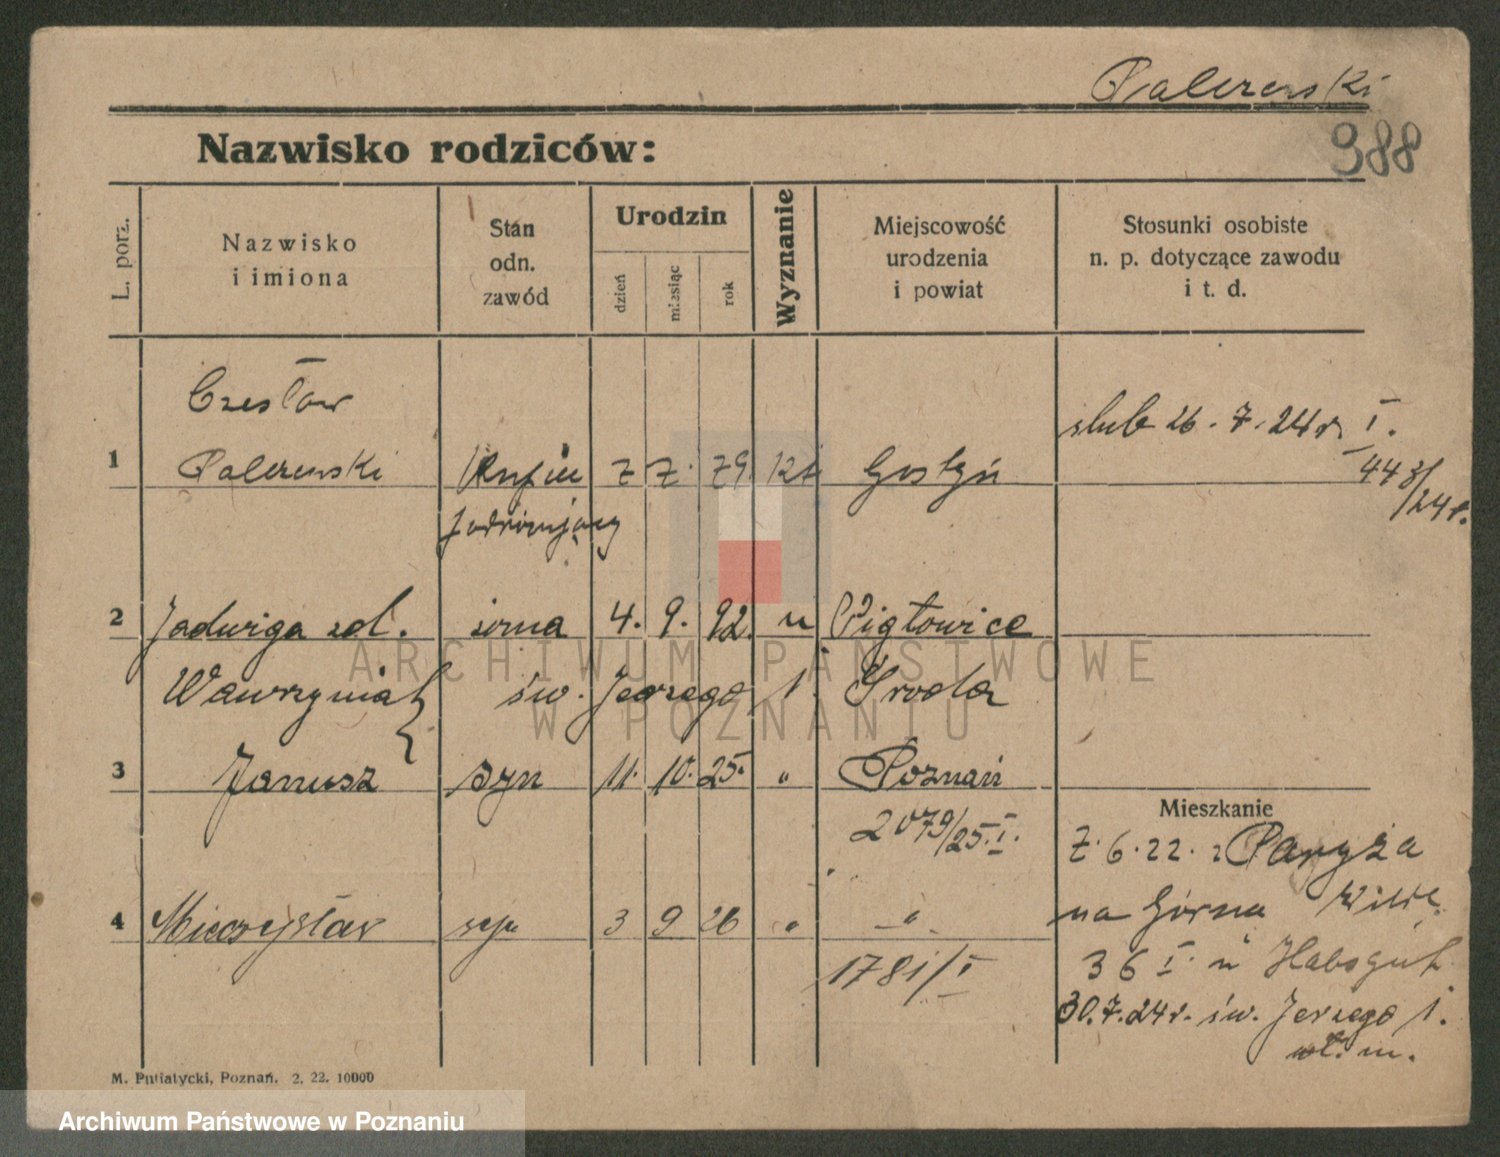 Palczewski
988
Nazwisko rodziców:
L. porz.
Nazwisko i imiona
Stan odn. zawód
Urodzin
dzień
miesiąc
rok
Wyznanie
Miejscowość urodzenia i powiat
Stosunki osobiste n. p. dotyczące zawodu i t. d.
Czesław
slub 26.7.24r. I.
1 Palczewski Kupiec 7 7. 79. kat Gostyń
443/24r.
podróżujący
2 Jadwiga zd. żona 4. 9. 92. " Piątkowice
Wawrzyniak św. Jerzego 1. Środa
3 Janusz syn 11. 10. 25. " Poznań
Mieszkanie
2079/25. I.
7.6.22. z Paryża
na Górna Wilde
4 Mieczysław syn 3 9 26 " "
36 I u
1781/I
30.7.24r. św. Jerzego 1.
wł. m.
M. Putiatycki, Poznań. 2. 22. 10000
ARCHIWUM PAŃSTWOWE
W POZNANIU
Archiwum Państwowe w Poznaniu